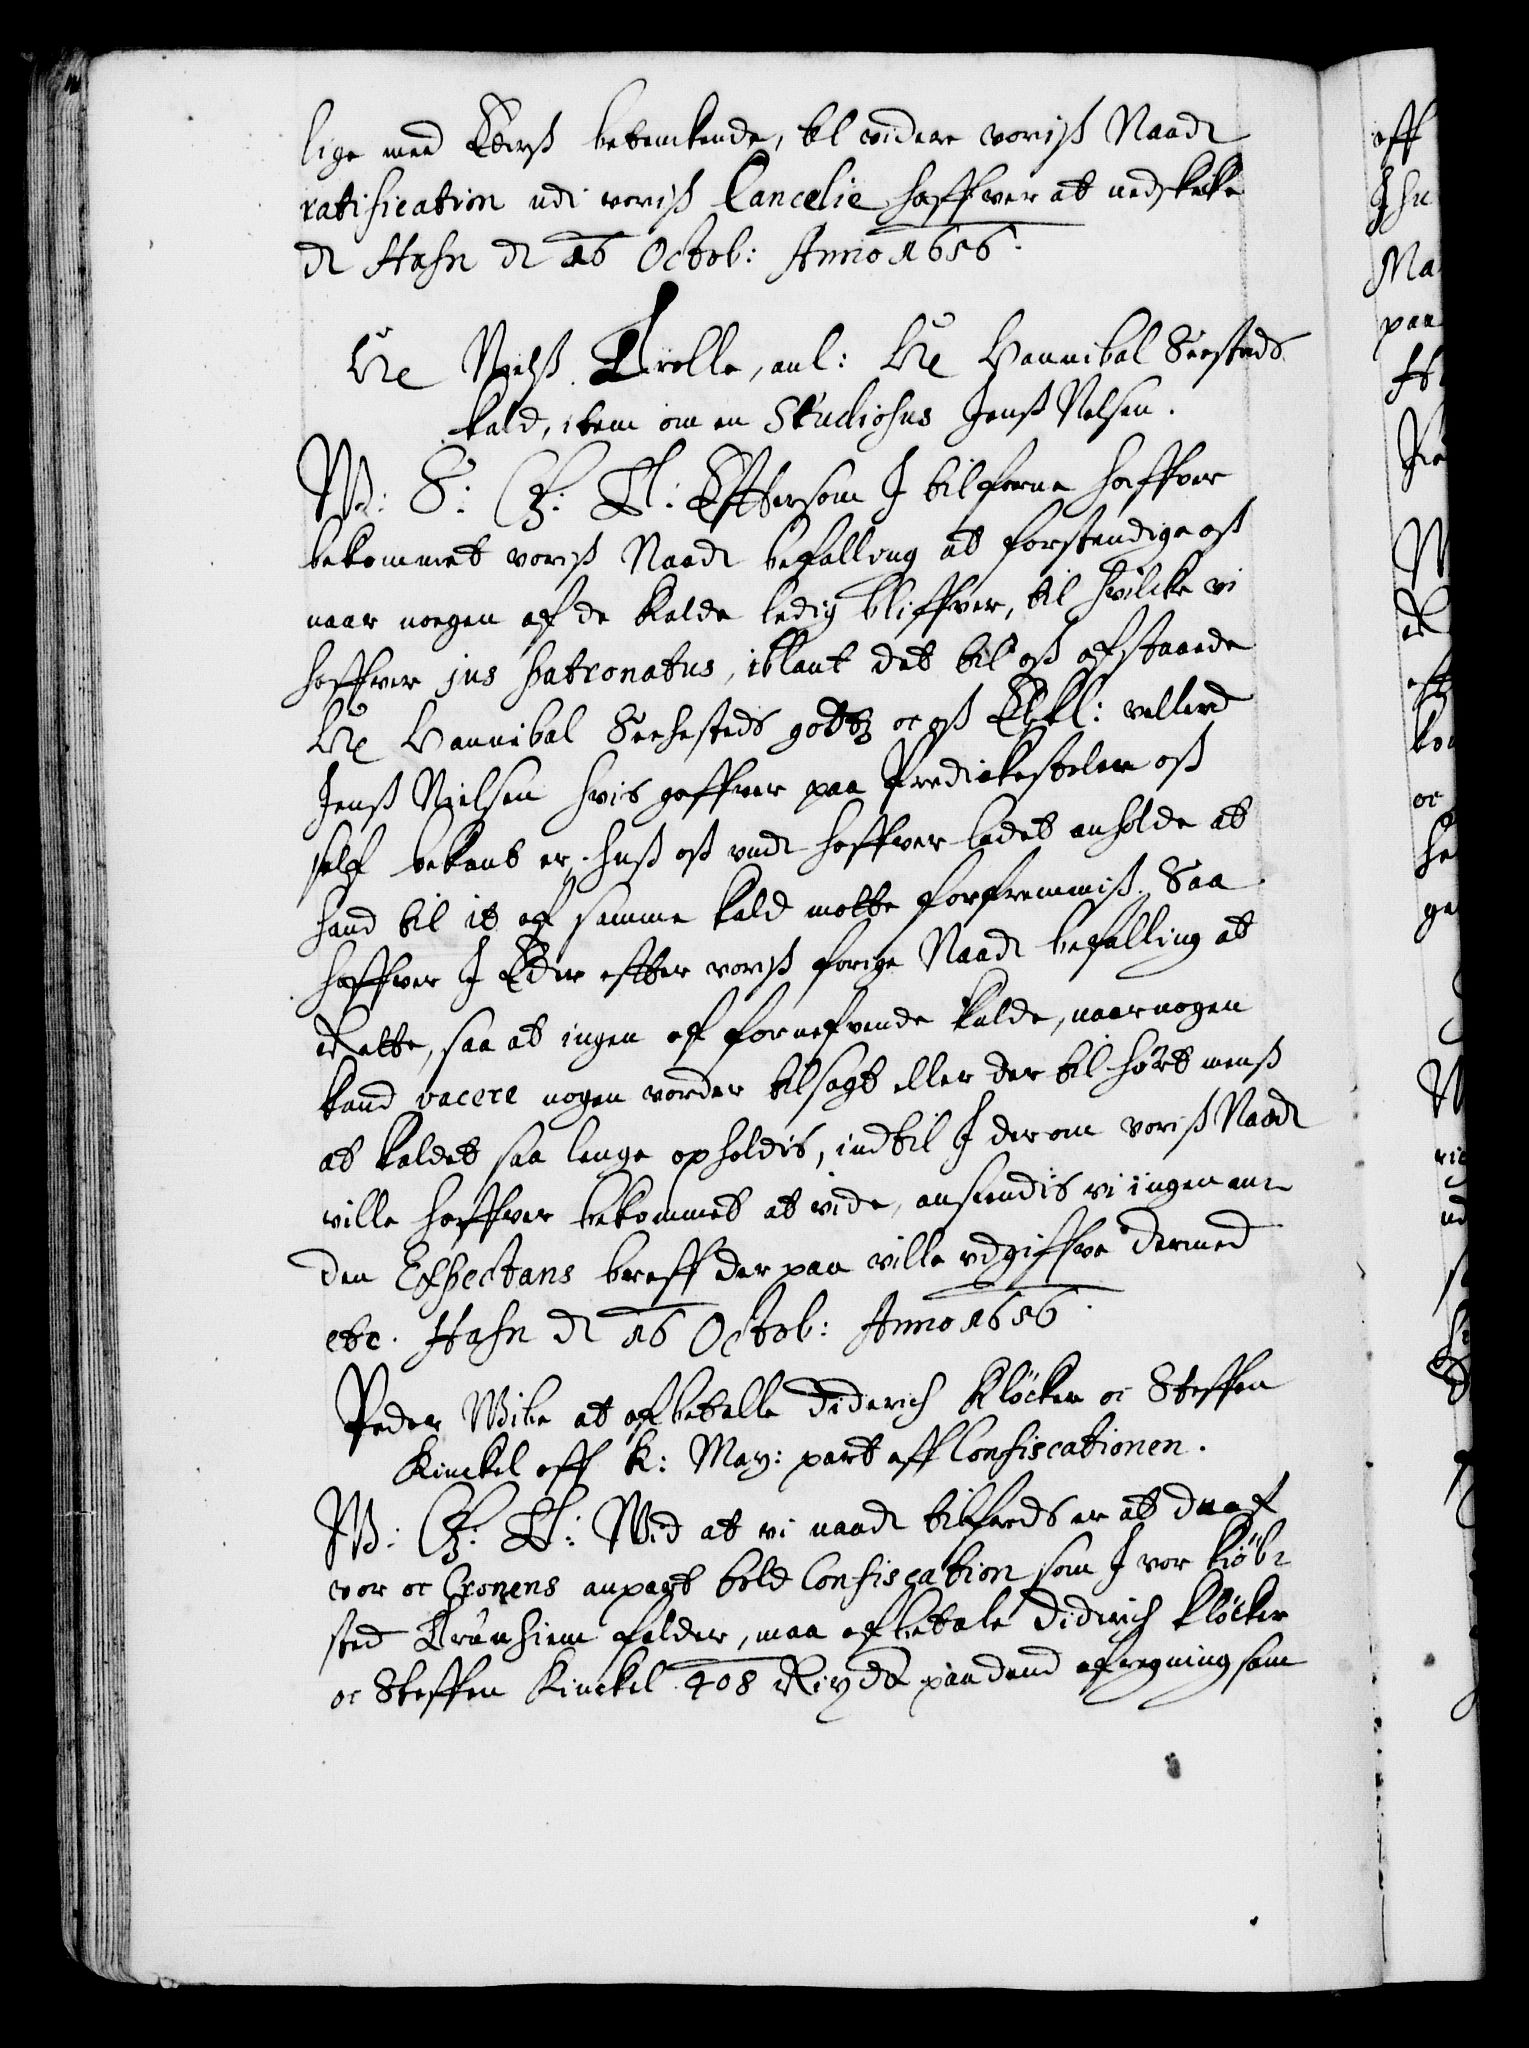 lige med Ederß betenkende, til videre voriß Naadl
ratification udi voriß Cancelie haffver at nedskicke
dl Hafn dl 16 Octob: Anno 1656.
Hr Nielß Trolle, anl: Hr Hannibal Seesteds
kald, item om en Studiosus Jenß Nelsen.
W: S: G: T: Efftersom I tilforne haffver
bekommet voriß Naadl befalling at forstendige oß
naar nogen af de kalde ledig bliffver, til hvilcke vi
haffver jus patronatus, iblant det til oß afstaaede
Hr Hannibal Seehesteds godtz oc oß Elskl: vellerd
Jenß Nielsen hvis gaffver paa Predickestolen oß
self bekant er, hoß oß undl haffver ladet anholde at
hand til it af samme kald motte forfremmiß. Saa
haffver I Eder effter voriß forige Naadl befalling at
Rette, saa at ingen af fornefvende kalde, naar nogen
kand vacere nogen vorder tilsagt eller der til hört menß
at kaldet saa lenge opholdis, indtil I der om voriß Naadl
ville haffver bekommet at vide, anseendis vi ingen an-
den Expectans breff der paa ville udgiffve dermed
etc. Hafn dl 16 Octob: Anno 1656.
Peder Wibe at afbetalle Diderich Klöcker oc Steffen
Kinckel aff K: May: part aff Confiscationen.
W: G: T: Wid at vi naadl tilfreds er at du af
vor oc Cronens anpart told Confiscation som I vor kiöb-
sted Trunhiem falder, maa afbetale Diderich klöcker
oc Steffen Kinckel 408 Rixdl paa dend afregning som